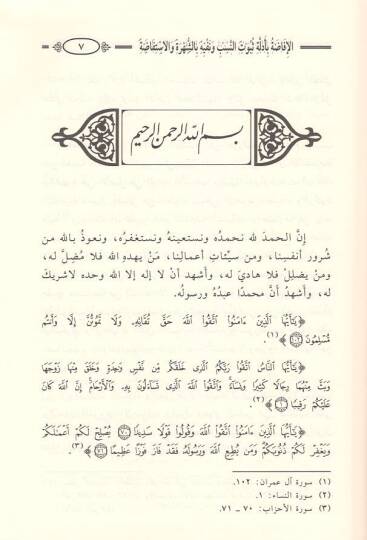 الإفاضة بأدلة ثبوت النسب ونفيه بالشهرة والاستفاضة ٧
بسم الله الرحمن الرحيم
إنَّ الحمدَ لله نحمده ونستعينهُ ونستغفرُه، ونعوذُ بالله من
شرور أنفسِنا، ومن سيّئاتِ أعمالِنا، مَنْ يهدهِ الله فلا مُضِلَّ له،
ومنْ يضلِلْ فلا هاديَ له، وأشهد أنْ لا إله إلا الله وحده لاشريكَ
له، وأشهدُ أنَّ محمدًا عبدُهُ ورسولُه.
﴿يَٰٓأَيُّهَا ٱلَّذِينَ ءَامَنُوا۟ ٱتَّقُوا۟ ٱللَّهَ حَقَّ تُقَاتِهِۦ وَلَا تَمُوتُنَّ إِلَّا وَأَنتُم
مُّسْلِمُونَ ١٠٢﴾(١).
﴿يَٰٓأَيُّهَا ٱلنَّاسُ ٱتَّقُوا۟ رَبَّكُمُ ٱلَّذِى خَلَقَكُم مِّن نَّفْسٍ وَٰحِدَةٍ وَخَلَقَ مِنْهَا زَوْجَهَا
وَبَثَّ مِنْهُمَا رِجَالًا كَثِيرًا وَنِسَآءً وَٱتَّقُوا۟ ٱللَّهَ ٱلَّذِى تَسَآءَلُونَ بِهِۦ وَٱلْأَرْحَامَ إِنَّ ٱللَّهَ كَانَ
عَلَيْكُمْ رَقِيبًا ١﴾(٢).
﴿يَٰٓأَيُّهَا ٱلَّذِينَ ءَامَنُوا۟ ٱتَّقُوا۟ ٱللَّهَ وَقُولُوا۟ قَوْلًا سَدِيدًا ٧٠ يُصْلِحْ لَكُمْ أَعْمَٰلَكُمْ
وَيَغْفِرْ لَكُمْ ذُنُوبَكُمْ وَمَن يُطِعِ ٱللَّهَ وَرَسُولَهُۥ فَقَدْ فَازَ فَوْزًا عَظِيمًا ٧١﴾(٣).
(١) سورة آل عمران: ١٠٢.
(٢) سورة النساء: ١.
(٣) سورة الأحزاب: ٧٠ ـ ٧١.